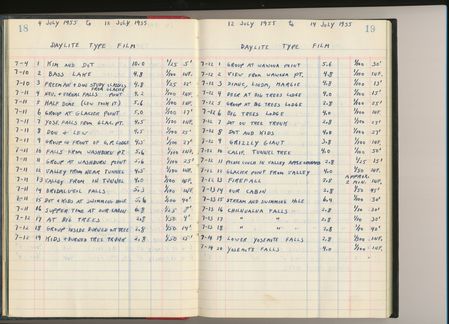 18
4 JULY 1955 to 12 JULY 1955
DAYLITE TYPE FILM
7-4 1 KIM AND DOT 10.0 1/25 5'
7-10 2 BASS LAKE 4.8 1/100 INF.
7-10 3 FREEMAN AND DON STUDY GLACIALS 4.8 1/25 25'
FROM GLACIER
7-11 4 NEV. & VERNAL FALLS POINT 5.2 1/100 INF.
7-11 5 HALF DOME (LEW TOOK IT) 5.6 1/100 INF.
7-11 6 GROUP AT GLACIER POINT 5.0 1/100 17'
7-11 7 YOSE. FALLS FROM GLAC. PT. 4.5 1/100 INF.
7-11 8 DON & LEW 4.5 1/100 25'
7-11 9 GROUP IN FRONT OF G.P. LODGE 4.5 1/100 27'
7-11 10 FALLS FROM WASHBURN PT. 5.6 1/100 INF.
7-11 11 GROUP AT WASHBURN POINT 5.6 1/100 25'
7-11 12 VALLEY FROM NEAR TUNNEL 4.5 1/100 INF.
7-11 13 VALLEY FROM IN TUNNEL 4.0 1/100 INF.
7-11 14 BRIDALVEIL FALLS 5.3 1/100 INF.
7-11 15 DOT & KIDS AT SWIMMING HOLE 5.6 1/100 40'
7-11 16 SUPPER TIME AT OUR CABIN 6.8 1/25 8'
7-12 17 AT BIG TREES 2.8 1/50 4'
7-12 18 GROUP INSIDE BURNED OUT TREE 2.8 1/50 14'
7-12 19 KIDS & BURNED TREE TRUNK 2.8 1/50 25'
12 JULY 1955 to 14 JULY 1955
19
DAYLITE TYPE FILM
7-12 1 GROUP AT WAWONA POINT 5.6 1/100 30'
7-12 2 VIEW FROM WAWONA PT. 4.8 1/100 INF.
7-12 3 DIANE, LINDA, MARGIE 4.8 1/100 13'
7-12 4 DEER AT BIG TREES LODGE 4.0 1/100 15'
7-12 5 GROUP AT BIG TREES LODGE 2.8 1/100 25'
7-12 6 BIG TREES LODGE 4.0 1/100 INF.
7-12 7 DOT ON TREE TRUNK 2.8 1/100 25'
7-12 8 DOT AND KIDS 4.0 1/100 27'
7-12 9 GRIZZLY GIANT 3.8 1/100 INF.
7-12 10 CALIF. TUNNEL TREE 4.0 1/100 50'
7-12 11 PICNIC LUNCH IN VALLEY 2.8 1/25 15'
7-12 12 GLACIER POINT FROM VALLEY 4.0 1/50 INF.
APPROX.
7-12 13 FIREFALL 2.8 2 MIN. INF.
7-13 14 OUR CABIN 2.8 1/50 45'
7-13 15 STREAM AND SWIMMING HOLE 6.4 1/100 30'
7-13 16 CHIHUALNA FALLS 2.8 1/100 30'
7-13 17 " " 2.8 1/100 30'
7-13 18 " " 2.8 1/100 40'
7-14 19 LOWER YOSEMITE FALLS 2.8 1/100 INF.
7-14 20 YOSEMITE FALLS 4.0 1/100 INF.